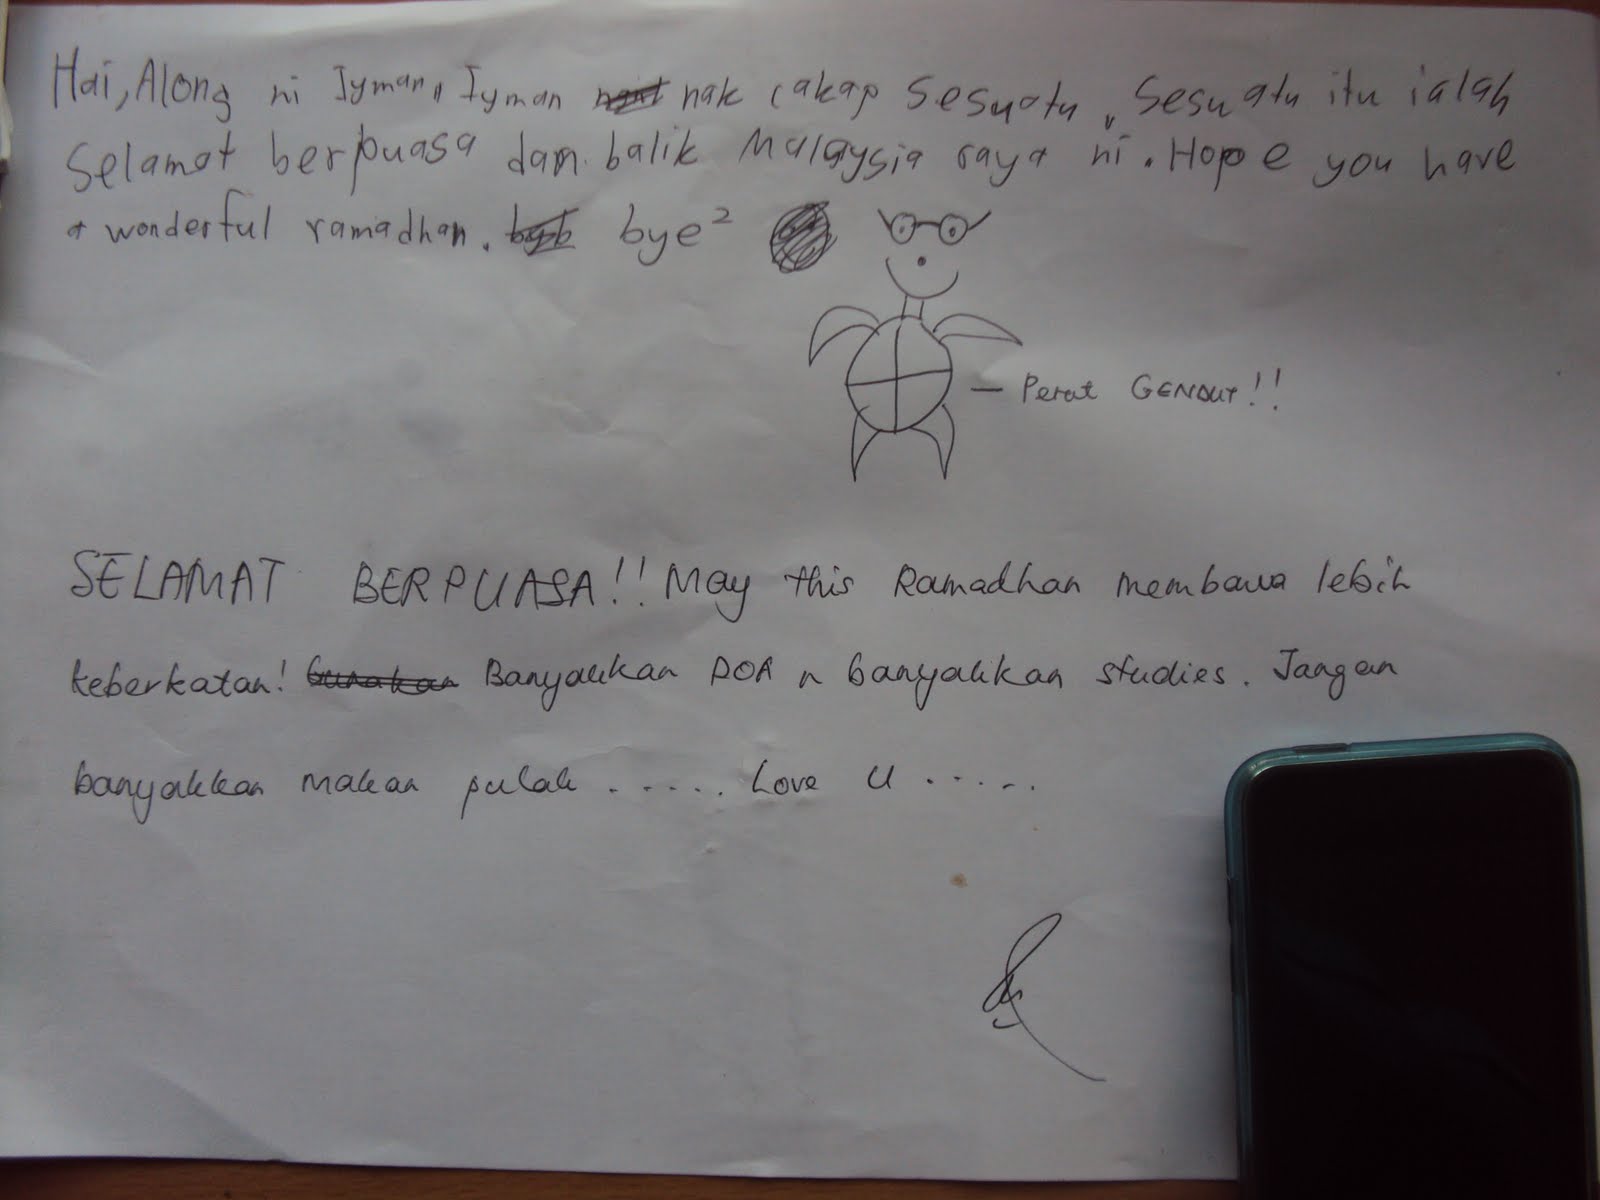 Hai, Along ni Iyman, Iyman nak cakap sesuatu, Sesuatu itu ialah
Selamat berpuasa dan balik Malaysia raya ni. Hope you have
a wonderful ramadhan. bye²
— Perut GENDUT!!
SELAMAT BERPUASA!! May this Ramadhan membawa lebih
keberkatan! Gunakan Banyakkan DOA n banyakkan studies. Jangan
banyakkan makan pulak ..... Love U .....